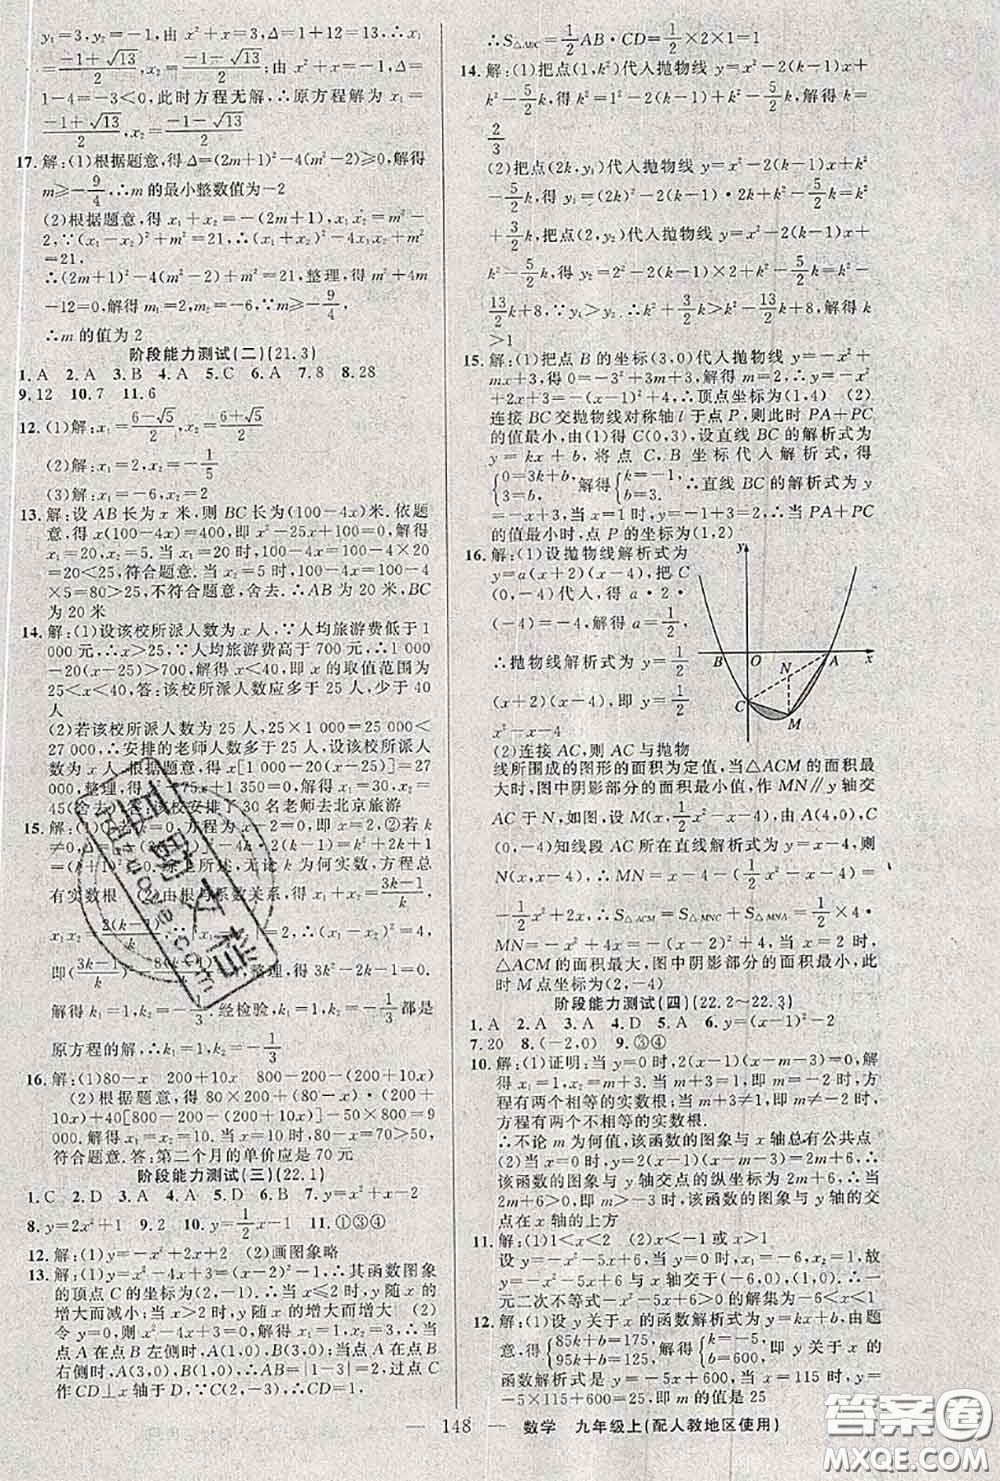 y₁=3,y₂=-1,由 x²+x=3,Δ=1+12=13,∴x₁
=(-1+√13)/2,x₂=(-1-√13)/2;由 x²+x=-1,Δ=
1-4=-3<0,此时方程无解,∴原方程解为 x₁=
(-1+√13)/2,x₂=(-1-√13)/2
17.解:(1)根据题意,得 Δ=(2m+1)²-4(m²-2)≥0,解得
m≥-9/4,∴m 的最小整数值为-2
(2)根据题意,得 x₁+x₂=-(2m+1),x₁x₂=m²-
2,∵(x₁-x₂)²+m²=21,∴(x₁+x₂)²-4x₁x₂+m²
=21,
∴(2m+1)²-4(m²-2)+m²=21,整理,得 m²+4m
-12=0,解得 m₁=2,m₂=-6,∵m≥-9/4,
∴m 的值为 2
阶段能力测试(二)(21.3)
1.A 2.A 3.B 4.A 5.C 6.A 7.8 8.28
9.12 10.7 11.6
12.(1)解:x₁=(6-√5)/2,x₂=(6+√5)/2
(2)解:x₁=2,x₂=-1/5
(3)解:x₁=-6,x₂=2
13.解:设 AB 长为 x 米,则 BC 长为(100-4x)米.依题
意,得 x(100-4x)=400,即 x²-25x+100=0,解得
x₁=20,x₂=5,当 x=20 时,100-4x=100-4×20
=20<25,符合题意,当 x₂=5 时,100-4x=100-4
×5=80>25,不符合题意,舍去.∴AB 为 20 米,BC
为 20 米
14.解:(1)设该校所派人数为 x 人,∵人均旅游费低于 1
000 元,∴x>25,∵人均旅游费高于 700 元,∴1
000-20(x-25)>700,解得 x<40,即 x 的取值范围为
25<x<40,答:该校所派人数应多于 25 人,少于 40
人
(2)若该校所派人数为 25 人,25×1 000=25 000<
27 000,∴安排的老师人数多于 25 人,设该校所派人
数为 x 人 根据题意,得 x[1 000-20(x-25)]=27
45(舍去),∴该校安排了 30 名老师去北京旅游
有实数根 (2)由根与系数关系,得 x₁+x₂=(3k-1)/k,
原方程的解,∴k₁=1,k₂=-1/3
16.解:(1)80-x 200+10x 800-200-(200+10x)
(2)根据题意,得 80×200+(80-x)(200+
10x)+40[800-200-(200+10x)]-50×800=9
000,解得 x₁=x₂=10.当 x=10 时,80-x=70>50,符
合题意.答:第二个月的单价应是 70 元
阶段能力测试(三)(22.1)
1.C 2.D 3.A 4.A 5.D 6.A 7.-2
8.y=2x²+1 9.2 10.y=1/2x 11.①③④
12.解:(1)y=-x²+4x-3 (2)画图象略
13.解:(1)y=x²-4x+3=(x-2)²-1,∴其函数图象
的顶点 C 的坐标为(2,-1),当 x≤2 时,y 随 x 的
增大而减小;当 x>2 时,y 随 x 的增大而增大 (2)
令 y=0,则 x²-4x+3=0,解得 x₁=1,x₂=3,∴当
点 A 在点 B 左侧时,A(1,0),B(3,0);当点 A 在点 B
右侧时,A(3,0),B(1,0),∴AB=|1-3|=2,过点 C
作 CD⊥x 轴于 D,∵C(2,-1),∴CD=1.
∴S△ABC=1/2AB·CD=1/2×2×1=1
14.解:(1)把点(1,k²)代入抛物线 y=x²-2(k-1)x+
k²-5/2k,得 k²=1²-2(k-1)+k²-5/2k,解得 k=
2/3
(2)把点(2k,y₁)代入抛物线 y=x²-2(k-1)x+k²
-5/2k,得 y₁=(2k)²-2(k-1)·2k+k²-5/2k=k²
+3/2k,把点(2,y₂)代入抛物线 y=x²-2(k-1)x+
k²-5/2k,得 y₂=2²-2(k-1)×2+k²-5/2k=k²-
13/2k+8,∵y₁>y₂,∴k²+3/2k>k²-13/2k+8,解得 k
>1
15.解:(1)把点 B 的坐标(3,0)代入抛物线 y=-x²+
mx+3,得 0=-3²+3m+3,解得 m=2,∴y=-x²
+2x+3=-(x-1)²+4,∴顶点坐标为(1,4) (2)
连接 BC 交抛物线对称轴 l 于点 P,则此时 PA+PC
的值最小,由(1)得 C(0,3),设直线 BC 的解析式为
y=kx+b,将点 C,B 坐标代入解析式,得
{0=3k+b, 3=b. 解得{k=-1, b=3. ∴直线 BC 的解析式为 y
=-x+3,当 x=1 时,y=-1+3=2,∴当 PA+PC
的值最小时,点 P 的坐标为(1,2)
16.解:(1)设抛物线解析式为
y=a(x+2)(x-4),把 C
(0,-4)代入,得 a·2·
(-4)=-4,解得 a=1/2,
∴抛物线解析式为 y=1/2
(x+2)(x-4),即 y=1/2
x²-x-4
(2)连接 AC,则 AC 与抛物
线所围成的图形的面积为定值,当△ACM 的面积最
大时,图中阴影部分的面积最小值,作 MN∥y 轴交
AC 于 N,如图,设 M(x,1/2x²-x-4),由 A(4,0),
C(0,-4)知线段 AC 所在直线解析式为 y=x-4,则
N(x,x-4),∴MN=x-4-(1/2x²-x-4)=
-1/2x²+2x,∵S△ACM=S△MNC+S△MNA=1/2×4
·MN=-x²+4x=-(x-2)²+4,当 x=2 时,
△ACM 的面积最大,图中阴影部分的面积最小,此
时 M 点坐标为(2,-4)
阶段能力测试(四)(22.2~22.3)
1.A 2.A 3.A 4.D 5.A 6.y=(x-1)²-2
7.20 8.(-2,0) 9.③④
10.解:(1)证明:当 y=0 时,2(x-1)(x-m-3)=0,解
得 x₁=1,x₂=m+3,当 m+3=1,即 m=-2 时,方
程有两个相等的实数根;当 m+3≠1,即 m≠-2 时,
方程有两个不相等的实数根.
∴不论 m 为何值,该函数的图象与 x 轴总有公共点
(2)当 x=0 时,y=2(x-1)(x-m-3)=2m+6,∴
该函数的图象与 y 轴交点的纵坐标为 2m+6,∴当
2m+6>0,即 m>-3 时,该函数的图象与 y 轴的交
点在 x 轴的上方
11.解:(1)1<x<2 (2)x<-1 或 x>1 (3)
设 y=-x²-5x+6,当 y=0 时,x₁=-6,x₂=1,故
y=-x²-5x+6 与 x 轴交于(-6,0),(1,0),∴
一元二次不等式-x²-5x+6>0 的解集为-6<x<1
12.解:(1)设 y 关于 x 的函数解析式为 y=kx+b,由题
意,得{85k+b=175, 95k+b=125, 解得{k=-5, b=600. ∴y 关于 x 的
函数解析式是 y=-5x+600,当 x=115 时,m=
-5×115+600=25,即 m 的值是 25
B O A x y N C M
— 148 — 数学 九年级上(配人教地区使用)
答案圈
MXQE.COM